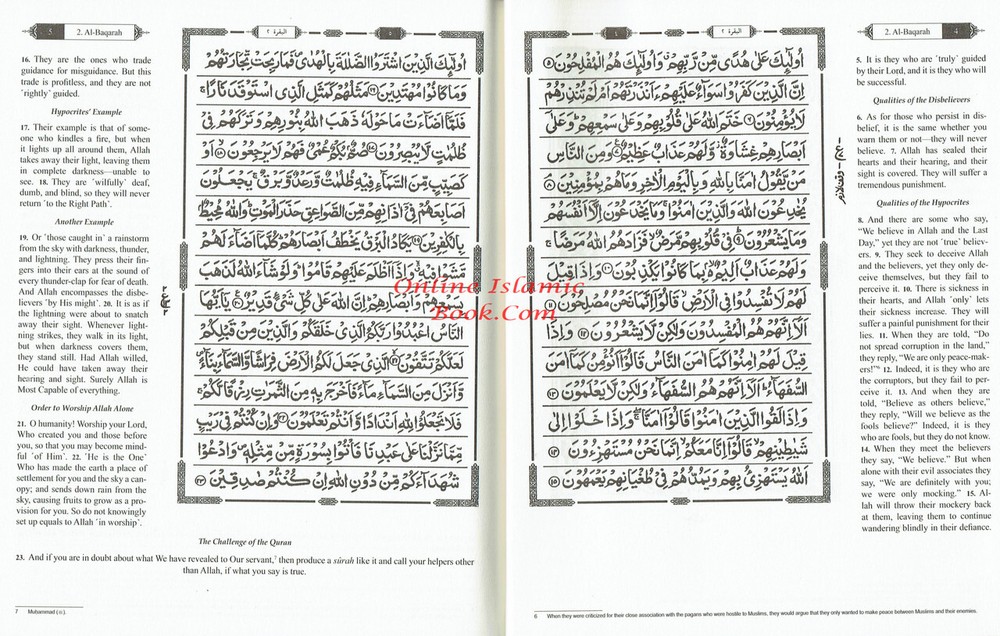 البقرة ٢
2. Al-Baqarah 4
اُولٰٓئِكَ عَلٰى هُدًى مِّنْ رَّبِّهِمْ وَاُولٰٓئِكَ هُمُ الْمُفْلِحُوْنَ ٥
اِنَّ الَّذِيْنَ كَفَرُوْا سَوَآءٌ عَلَيْهِمْ ءَاَنْذَرْتَهُمْ اَمْ لَمْ تُنْذِرْهُمْ
لَا يُؤْمِنُوْنَ ٦ خَتَمَ اللّٰهُ عَلٰى قُلُوْبِهِمْ وَعَلٰى سَمْعِهِمْ وَعَلٰٓى
اَبْصَارِهِمْ غِشَاوَةٌ وَّلَهُمْ عَذَابٌ عَظِيْمٌ ٧ وَمِنَ النَّاسِ
مَنْ يَّقُوْلُ اٰمَنَّا بِاللّٰهِ وَبِالْيَوْمِ الْاٰخِرِ وَمَا هُمْ بِمُؤْمِنِيْنَ ٨
يُخٰدِعُوْنَ اللّٰهَ وَالَّذِيْنَ اٰمَنُوْا وَمَا يَخْدَعُوْنَ اِلَّآ اَنْفُسَهُمْ
وَمَا يَشْعُرُوْنَ ٩ فِيْ قُلُوْبِهِمْ مَّرَضٌ فَزَادَهُمُ اللّٰهُ مَرَضًا
وَلَهُمْ عَذَابٌ اَلِيْمٌ بِمَا كَانُوْا يَكْذِبُوْنَ ١٠ وَاِذَا قِيْلَ
لَهُمْ لَا تُفْسِدُوْا فِى الْاَرْضِ قَالُوْٓا اِنَّمَا نَحْنُ مُصْلِحُوْنَ ١١
اَلَآ اِنَّهُمْ هُمُ الْمُفْسِدُوْنَ وَلٰكِنْ لَّا يَشْعُرُوْنَ ١٢ وَاِذَا
قِيْلَ لَهُمْ اٰمِنُوْا كَمَآ اٰمَنَ النَّاسُ قَالُوْٓا اَنُؤْمِنُ كَمَآ اٰمَنَ
السُّفَهَآءُ اَلَآ اِنَّهُمْ هُمُ السُّفَهَآءُ وَلٰكِنْ لَّا يَعْلَمُوْنَ ١٣
وَاِذَا لَقُوا الَّذِيْنَ اٰمَنُوْا قَالُوْٓا اٰمَنَّا وَاِذَا خَلَوْا اِلٰى
شَيٰطِيْنِهِمْ قَالُوْٓا اِنَّا مَعَكُمْ اِنَّمَا نَحْنُ مُسْتَهْزِءُوْنَ ١٤
اَللّٰهُ يَسْتَهْزِئُ بِهِمْ وَيَمُدُّهُمْ فِيْ طُغْيَانِهِمْ يَعْمَهُوْنَ ١٥
5. It is they who are ˹truly˺ guided
by their Lord, and it is they who will
be successful.
Qualities of the Disbelievers
6. As for those who persist in dis-
belief, it is the same whether you
warn them or not—they will never
believe. 7. Allah has sealed their
hearts and their hearing, and their
sight is covered. They will suffer a
tremendous punishment.
Qualities of the Hypocrites
8. And there are some who say,
“We believe in Allah and the Last
Day,” yet they are not ˹true˺ believ-
ers. 9. They seek to deceive Allah
and the believers, yet they only de-
ceive themselves, but they fail to
perceive it. 10. There is sickness in
their hearts, and Allah ˹only˺ lets
their sickness increase. They will
suffer a painful punishment for their
lies. 11. When they are told, “Do
not spread corruption in the land,”
they reply, “We are only peace-mak-
ers!”⁶ 12. Indeed, it is they who are
the corruptors, but they fail to per-
ceive it. 13. And when they are
told, “Believe as others believe,”
they reply, “Will we believe as the
fools believe?” Indeed, it is they
who are fools, but they do not know.
14. When they meet the believers
they say, “We believe.” But when
alone with their evil associates they
say, “We are definitely with you;
we were only mocking.” 15. Al-
lah will throw their mockery back
at them, leaving them to continue
wandering blindly in their defiance.
6 When they were criticized for their close association with the pagans who were hostile to Muslims, they would argue that they only wanted to make peace between Muslims and their enemies.
5 2. Al-Baqarah
البقرة ٢
اُولٰٓئِكَ الَّذِيْنَ اشْتَرَوُا الضَّلٰلَةَ بِالْهُدٰى فَمَا رَبِحَتْ تِّجَارَتُهُمْ
وَمَا كَانُوْا مُهْتَدِيْنَ ١٦ مَثَلُهُمْ كَمَثَلِ الَّذِى اسْتَوْقَدَ نَارًا
فَلَمَّآ اَضَآءَتْ مَا حَوْلَهٗ ذَهَبَ اللّٰهُ بِنُوْرِهِمْ وَتَرَكَهُمْ فِيْ
ظُلُمٰتٍ لَّا يُبْصِرُوْنَ ١٧ صُمٌّ بُكْمٌ عُمْيٌ فَهُمْ لَا يَرْجِعُوْنَ ١٨ اَوْ
كَصَيِّبٍ مِّنَ السَّمَآءِ فِيْهِ ظُلُمٰتٌ وَّرَعْدٌ وَّبَرْقٌ يَجْعَلُوْنَ
اَصَابِعَهُمْ فِيْٓ اٰذَانِهِمْ مِّنَ الصَّوَاعِقِ حَذَرَ الْمَوْتِ وَاللّٰهُ مُحِيْطٌ
بِالْكٰفِرِيْنَ ١٩ يَكَادُ الْبَرْقُ يَخْطَفُ اَبْصَارَهُمْ كُلَّمَآ اَضَآءَ لَهُمْ
مَّشَوْا فِيْهِ وَاِذَآ اَظْلَمَ عَلَيْهِمْ قَامُوْا وَلَوْ شَآءَ اللّٰهُ لَذَهَبَ
بِسَمْعِهِمْ وَاَبْصَارِهِمْ اِنَّ اللّٰهَ عَلٰى كُلِّ شَيْءٍ قَدِيْرٌ ٢٠ يٰٓاَيُّهَا
النَّاسُ اعْبُدُوْا رَبَّكُمُ الَّذِيْ خَلَقَكُمْ وَالَّذِيْنَ مِنْ قَبْلِكُمْ
لَعَلَّكُمْ تَتَّقُوْنَ ٢١ الَّذِيْ جَعَلَ لَكُمُ الْاَرْضَ فِرَاشًا وَّالسَّمَآءَ بِنَآءً
وَّاَنْزَلَ مِنَ السَّمَآءِ مَآءً فَاَخْرَجَ بِهٖ مِنَ الثَّمَرٰتِ رِزْقًا لَّكُمْ
فَلَا تَجْعَلُوْا لِلّٰهِ اَنْدَادًا وَّاَنْتُمْ تَعْلَمُوْنَ ٢٢ وَاِنْ كُنْتُمْ فِيْ رَيْبٍ
مِّمَّا نَزَّلْنَا عَلٰى عَبْدِنَا فَاْتُوْا بِسُوْرَةٍ مِّنْ مِّثْلِهٖ وَادْعُوْا
شُهَدَآءَكُمْ مِّنْ دُوْنِ اللّٰهِ اِنْ كُنْتُمْ صٰدِقِيْنَ ٢٣
16. They are the ones who trade
guidance for misguidance. But this
trade is profitless, and they are not
˹rightly˺ guided.
Hypocrites' Example
17. Their example is that of some-
one who kindles a fire, but when
it lights up all around them, Allah
takes away their light, leaving them
in complete darkness—unable to
see. 18. They are ˹wilfully˺ deaf,
dumb, and blind, so they will never
return ˹to the Right Path˺.
Another Example
19. Or ˹those caught in˺ a rainstorm
from the sky with darkness, thunder,
and lightning. They press their fin-
gers into their ears at the sound of
every thunder-clap for fear of death.
And Allah encompasses the disbe-
lievers ˹by His might˺. 20. It is as if
the lightning were about to snatch
away their sight. Whenever light-
ning strikes, they walk in its light,
but when darkness covers them,
they stand still. Had Allah willed,
He could have taken away their
hearing and sight. Surely Allah is
Most Capable of everything.
Order to Worship Allah Alone
21. O humanity! Worship your Lord,
Who created you and those before
you, so that you may become mind-
ful ˹of Him˺. 22. ˹He is the One˺
Who has made the earth a place of
settlement for you and the sky a can-
opy; and sends down rain from the
sky, causing fruits to grow as a pro-
vision for you. So do not knowingly
set up equals to Allah ˹in worship˺.
The Challenge of the Quran
23. And if you are in doubt about what We have revealed to Our servant,⁷ then produce a sûrah like it and call your helpers other
than Allah, if what you say is true.
7 Muhammad (ﷺ).
Online Islamic
Book.Com